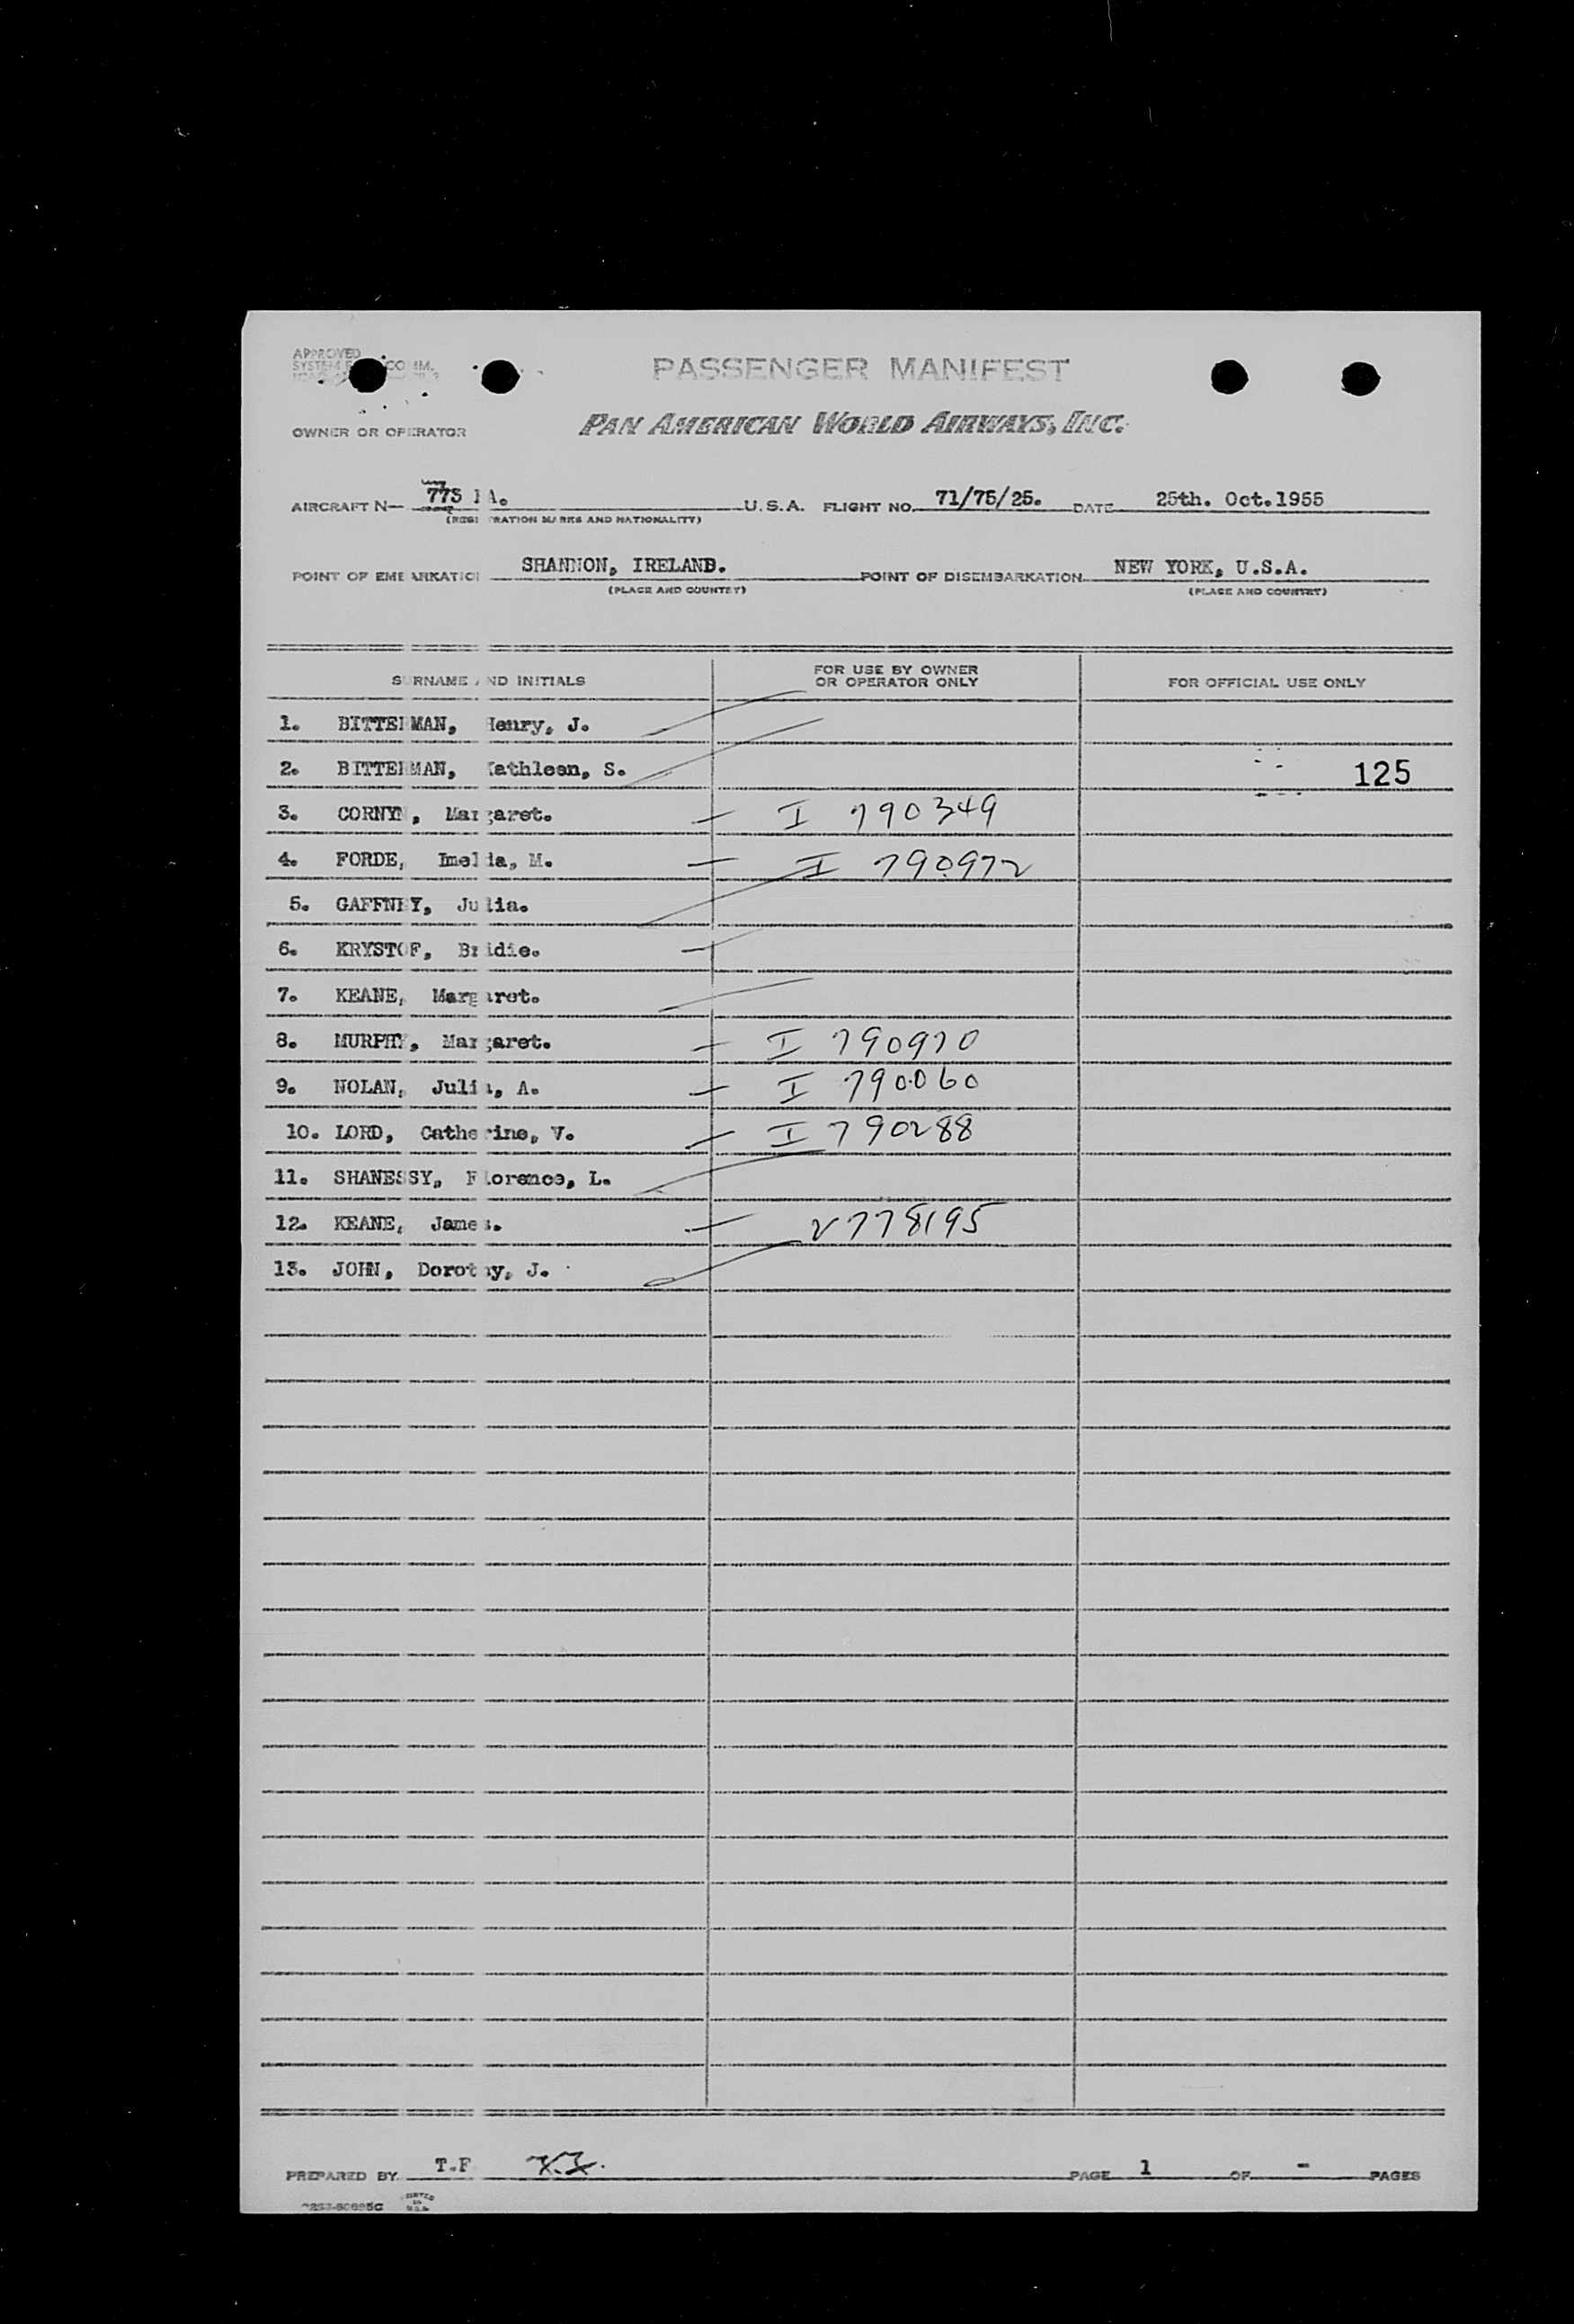 APPROVED
PASSENGER MANIFEST
OWNER OR OPERATOR
PAN AMERICAN WORLD AIRWAYS, INC.
AIRCRAFT N— 773 PA. U.S.A. FLIGHT NO. 71/75/25. DATE 25th. Oct.1955
(REGISTRATION MARKS AND NATIONALITY)
POINT OF EMBARKATION SHANNON, IRELAND. POINT OF DISEMBARKATION NEW YORK, U.S.A.
(PLACE AND COUNTRY) (PLACE AND COUNTRY)
SURNAME AND INITIALS FOR USE BY OWNER OR OPERATOR ONLY FOR OFFICIAL USE ONLY
1. BITTERMAN, Henry, J.
2. BITTERMAN, Kathleen, S. 125
3. CORNYN, Margaret. — I 790349
4. FORDE, Imelda, M. — I 790972
5. GAFFNEY, Julia.
6. KRYSTOF, Bridie.
7. KEANE, Margaret.
8. MURPHY, Margaret. — I 790970
9. NOLAN, Julia, A. — I 790060
10. LORD, Catherine, V. — I 790288
11. SHANESSY, Florence, L.
12. KEANE, James. — V778195
13. JOHN, Dorothy, J.
PREPARED BY T.F PAGE 1 OF - PAGES
PRINTED IN U.S.A.